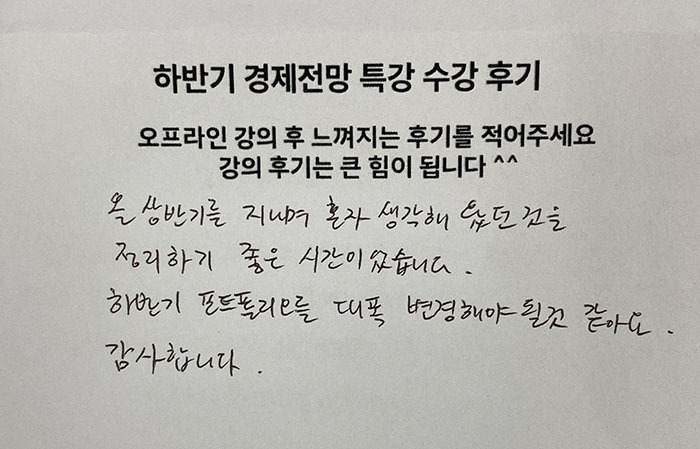 하반기 경제전망 특강 수강 후기
오프라인 강의 후 느껴지는 후기를 적어주세요
강의 후기는 큰 힘이 됩니다 ^^
올 상반기를 지내며 혼자 생각해 왔던 것을
정리하기 좋은 시간이었습니다.
하반기 포트폴리오를 대폭 변경해야 될것 같아요.
감사합니다.